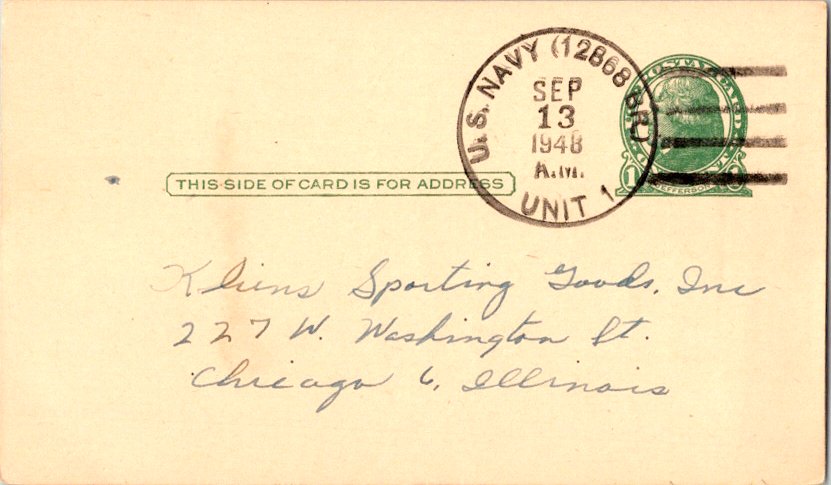 U.S. NAVY (12868 BR)
SEP
13
1948
A.M.
UNIT 1
POSTAL CARD
JEFFERSON
THIS SIDE OF CARD IS FOR ADDRESS
Kliens Sporting Goods, Inc
227 W. Washington St.
Chicago 6, Illinois